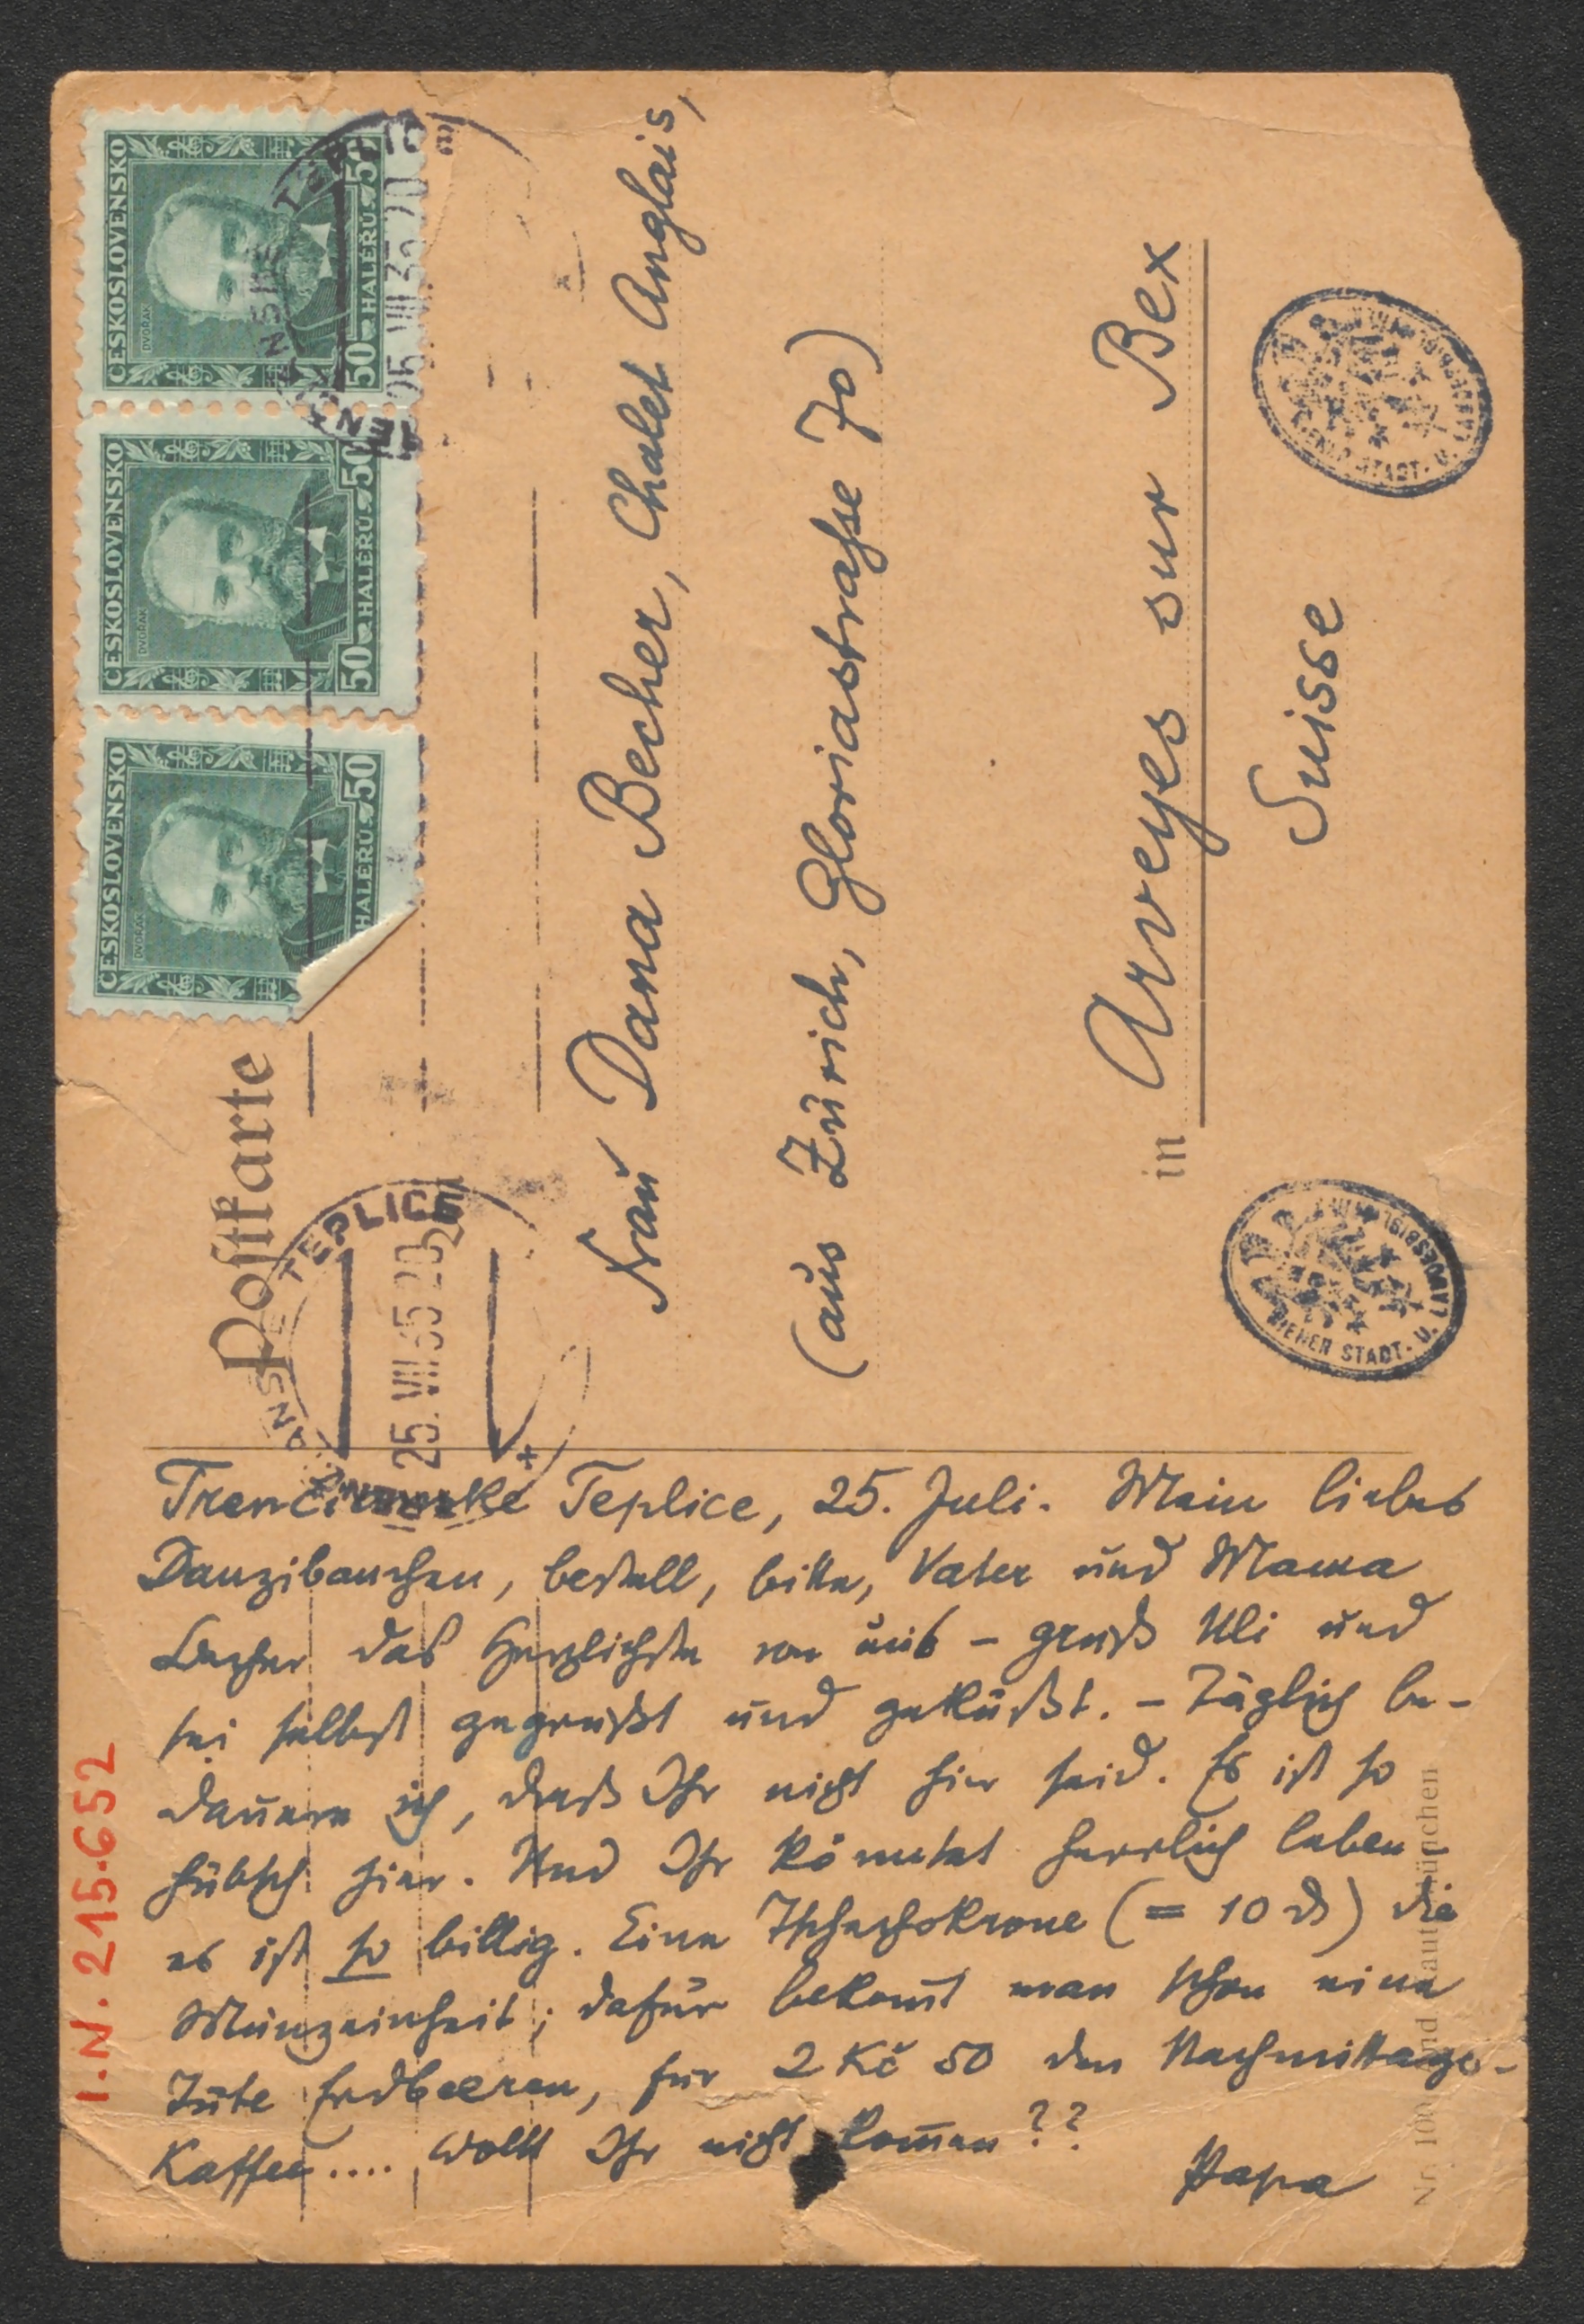 ČESKOSLOVENSKO
DVOŘÁK
50 HALÉŘŮ 50
ČESKOSLOVENSKO
DVOŘÁK
50 HALÉŘŮ 50
ČESKOSLOVENSKO
DVOŘÁK
HALÉŘŮ 50
Postkarte
TEPLICE
25. VII 35 20
Frau Dana Becher, Chalet Anglais,
(aus Zürich, Gloriastraße 70)
in Arveyes sur Bex
Suisse
WIENER STADT- U. LANDESBIBLIOTHEK
WIENER STADT- U. LANDESBIBLIOTHEK
Trenčianske Teplice, 25. Juli. Mein liebes
Danzibauchen, bestell, bitte, Vater und Mama
Becher das Herzlichste von uns – grüß Uli und
sei selbst gegrüßt und geküßt. – Täglich be-
dauere ich, daß Ihr nicht hier seid. Es ist so
hübsch hier. Und Ihr könntet herrlich leben
es ist so billig. Eine Tschechokrone (= 10 ₰) die
Münzeinheit; dafür bekom̄t man schon eine
Tüte Erdbeeren, für 2 Kč 50 den Nachmittags-
Kaffee.... Wollt Ihr nicht kom̄en??
Papa
I.N. 215.652
Nr. 100 München